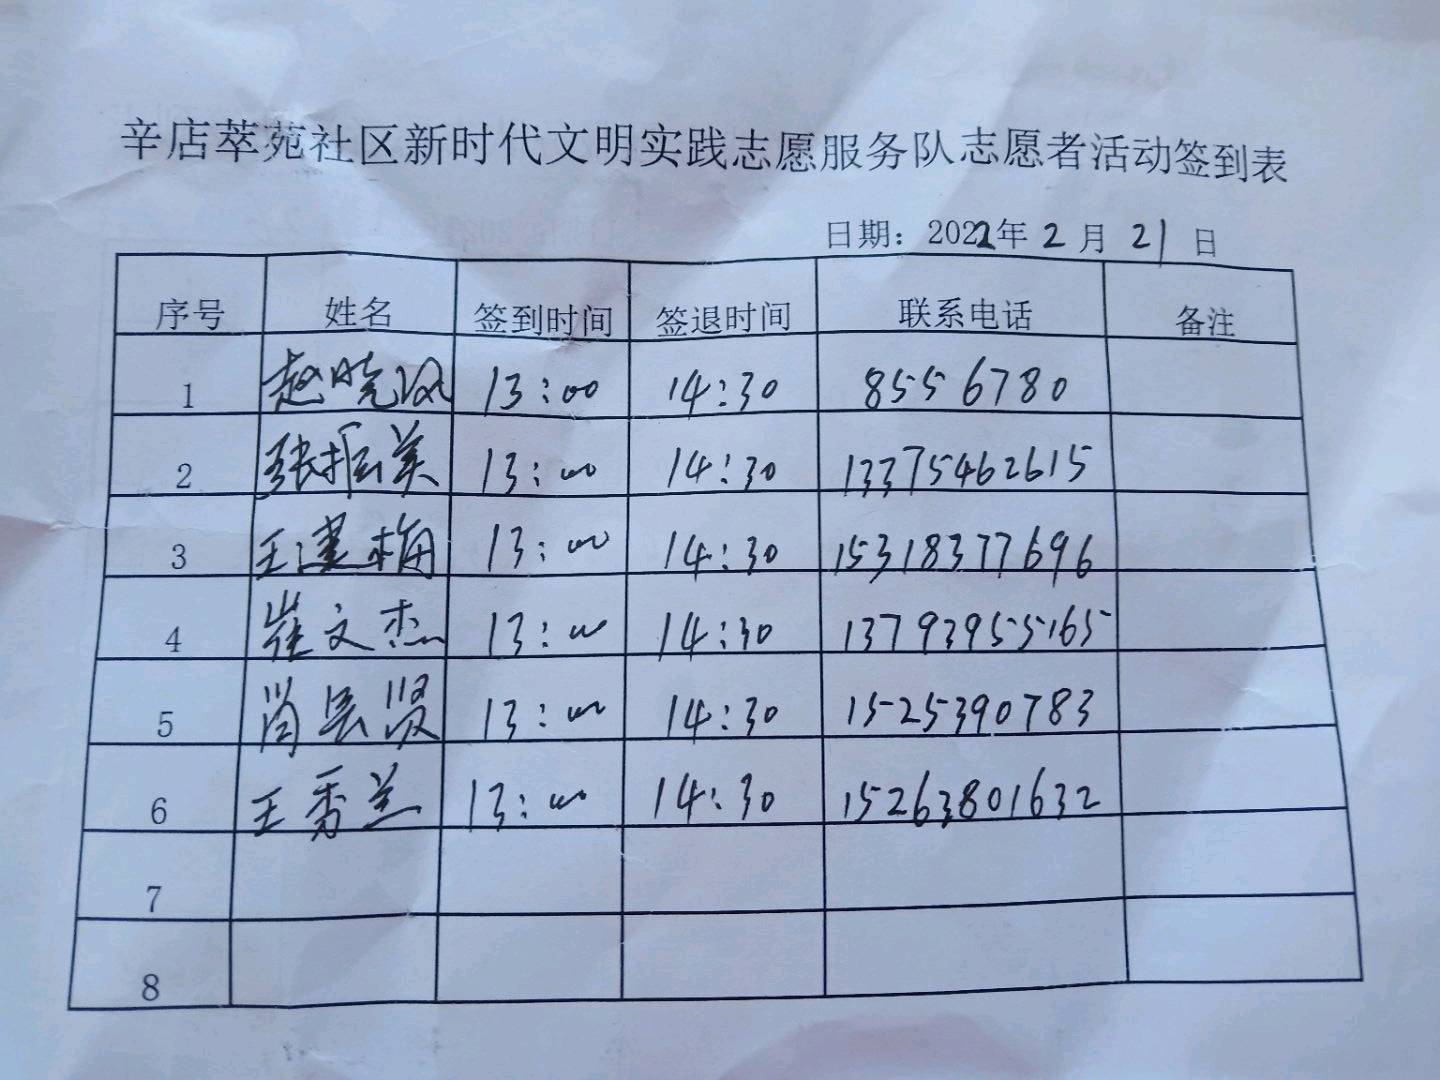 辛店萃苑社区新时代文明实践志愿服务队志愿者活动签到表
日期：2022年2月21日
序号 姓名 签到时间 签退时间 联系电话 备注
1 赵晓汉 13:00 14:30 8556780
2 张振美 13:00 14:30 13375462615
3 王建梅 13:00 14:30 15318377696
4 崔文杰 13:00 14:30 13793955165
5 13:00 14:30 15253390783
6 王秀兰 13:00 14:30 15263801632
7
8